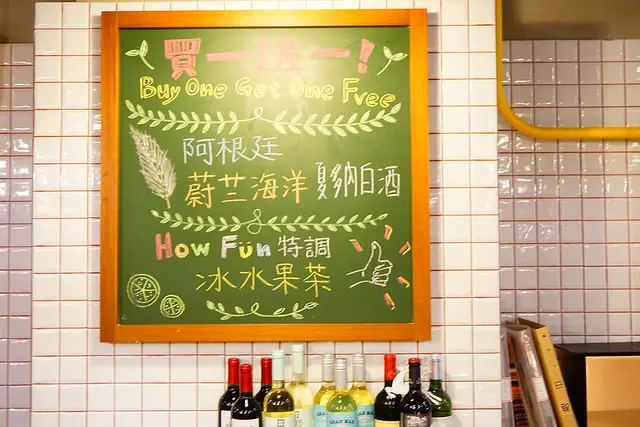 買一送一!
Buy One Get One Free
阿根廷
蔚芷海洋 夏多內白酒
How Fün 特調
冰水果茶